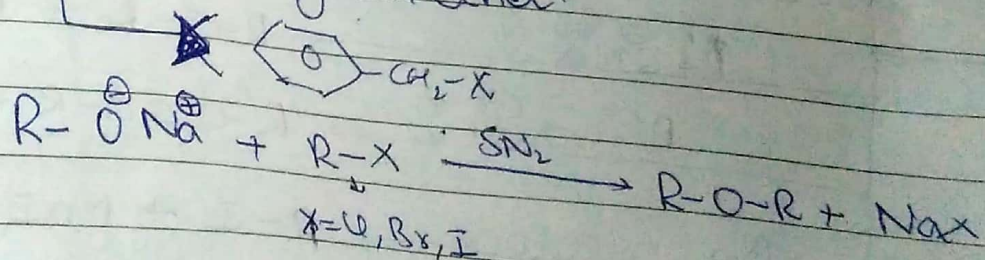 -CH₂-X
R-O⊖Na⊕ + R-X SN₂ → R-O-R + NaX
X=Cl, Br, I